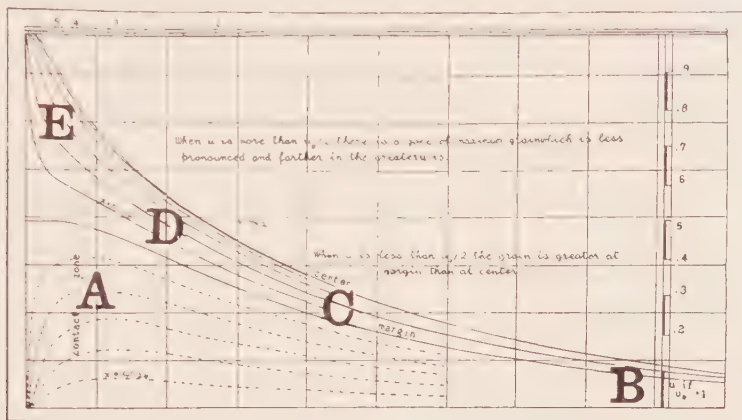 5 4 3
.9
E
.8
When u is more than there is a zone of maximum grain which is less
pronounced and farther in the greater u is
.7
.6
D
.5
When u is less than u₀/2 the grain is greater at
margin than at center
.4
center
A
contact zone
.3
C
margin
.2
B
u if
u₀ = 1